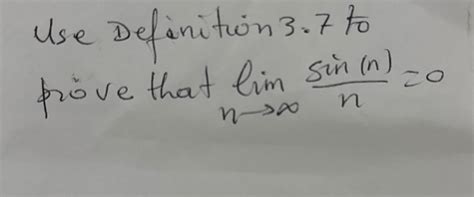 Use Definition 3.7 to
prove that lim sin(n)/n = 0
n→∞